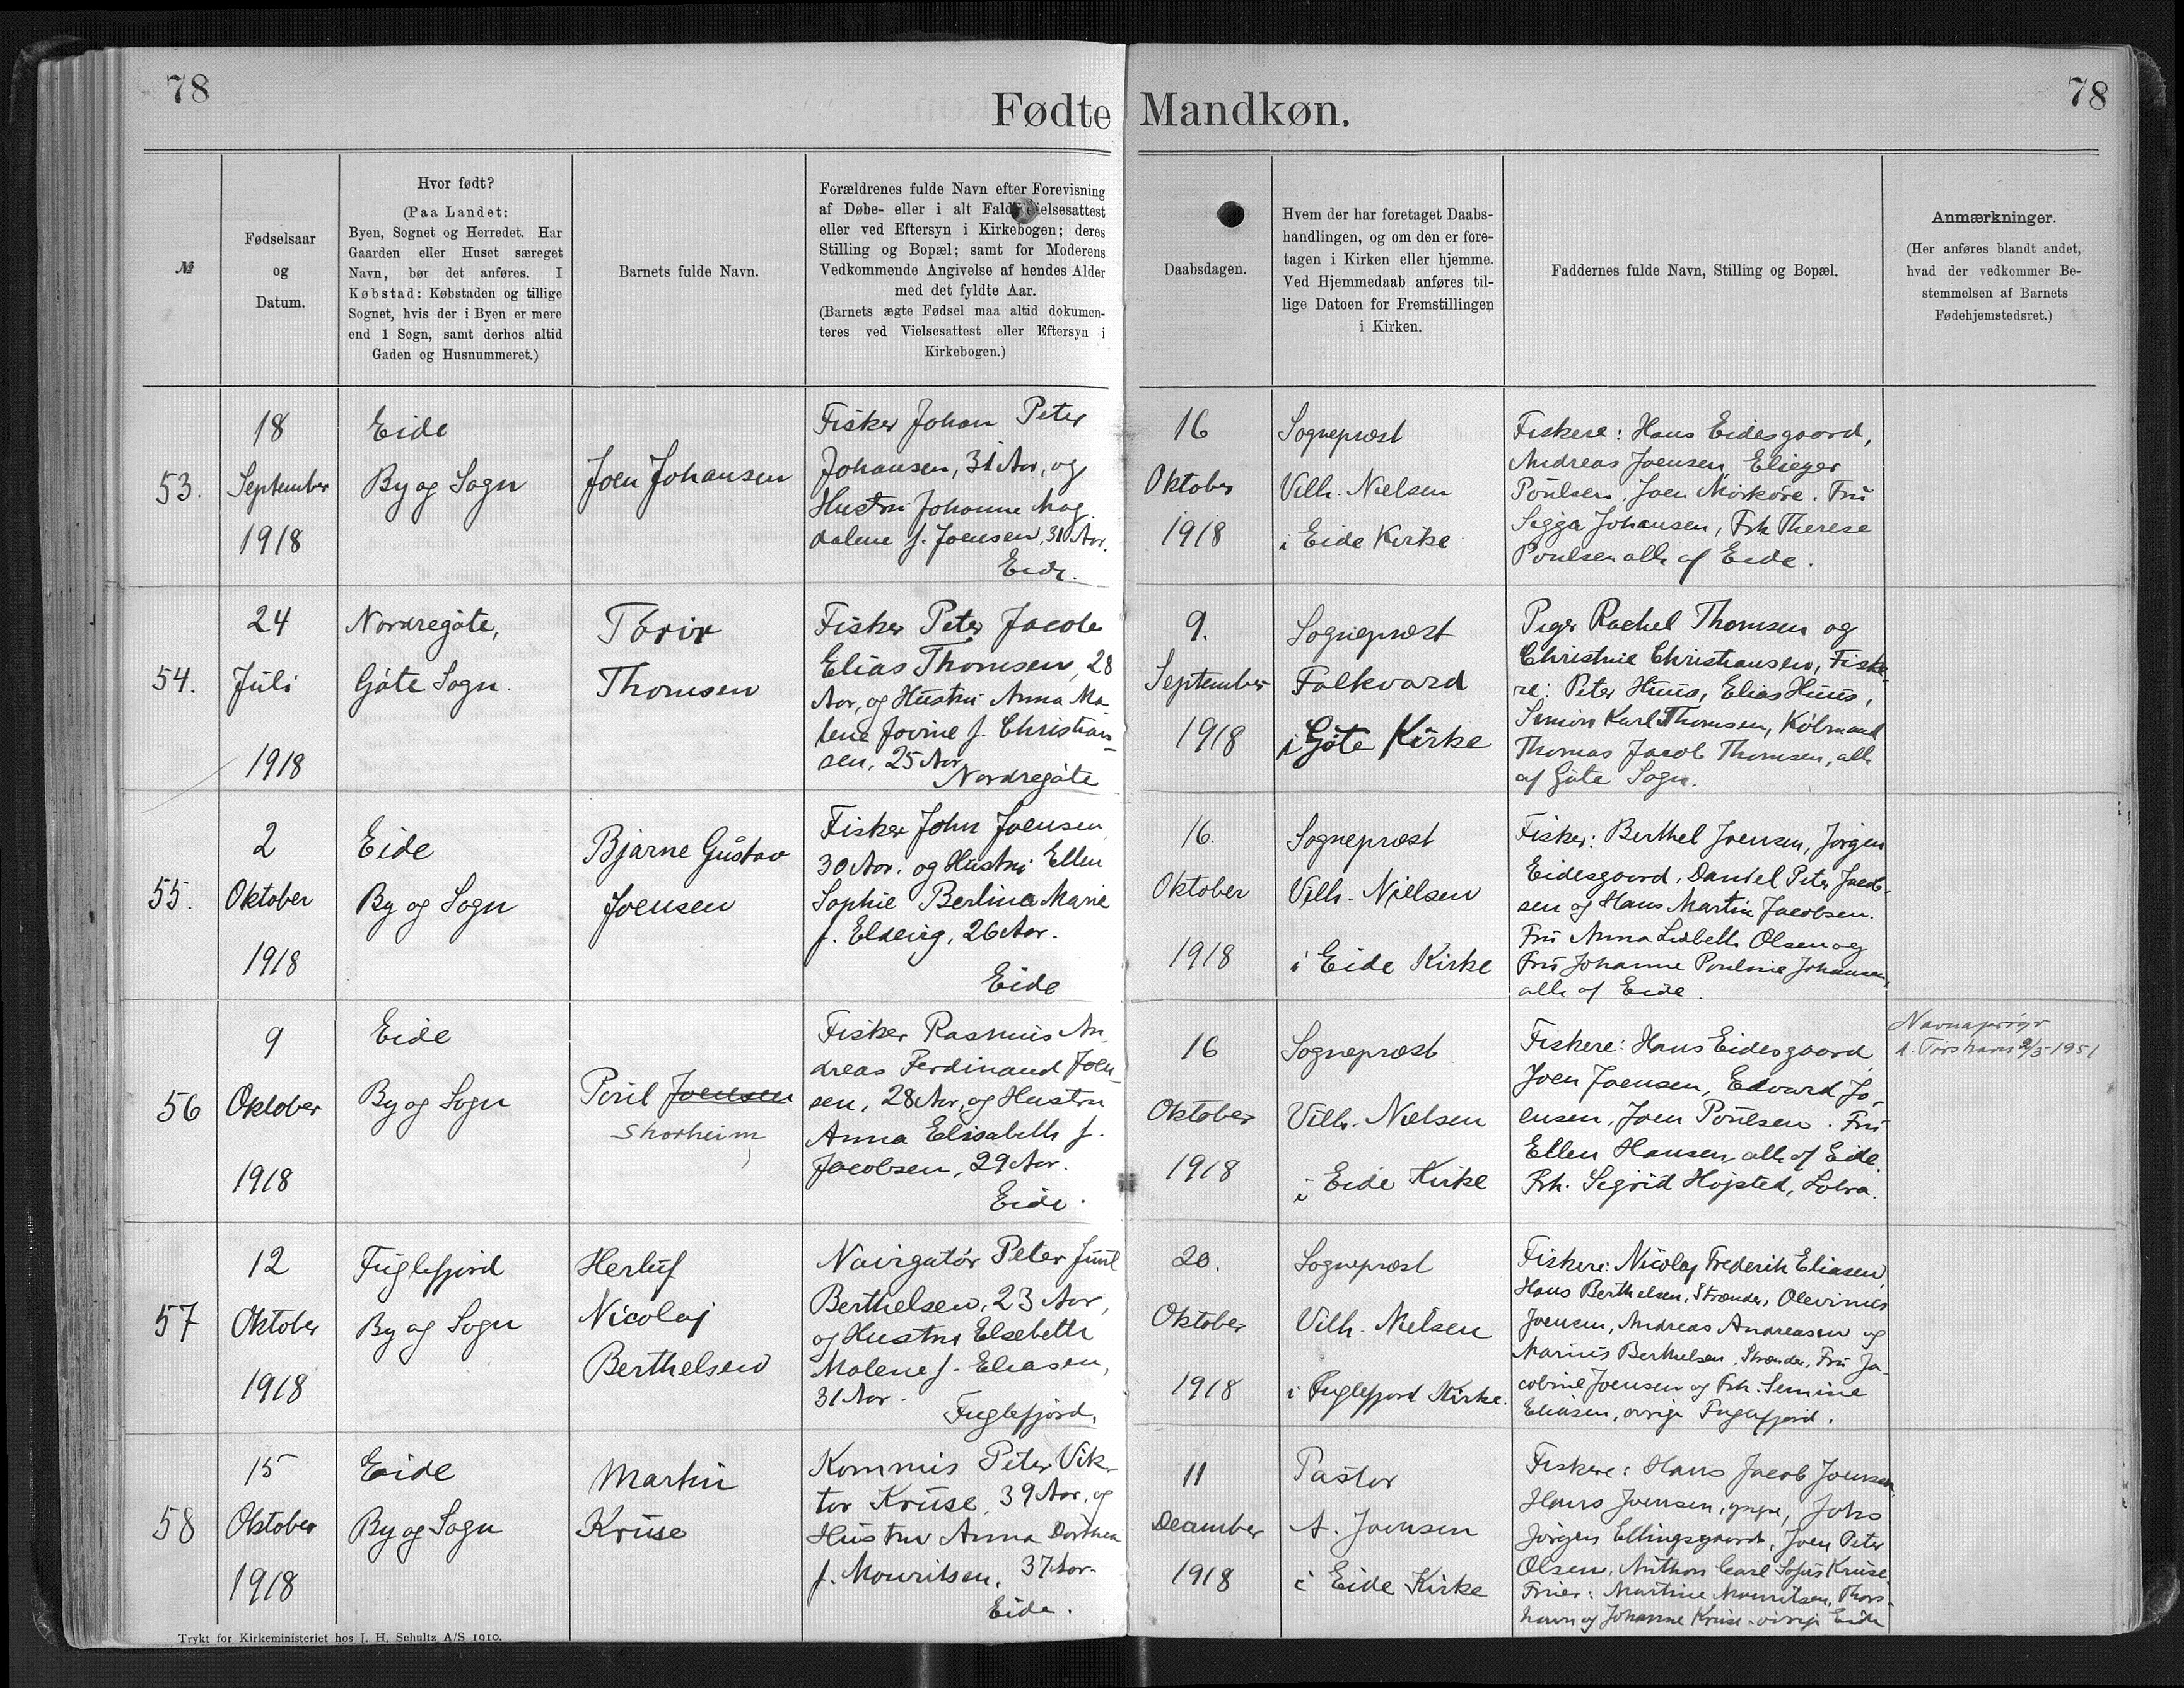 78
78
Fødte Mandkøn.
№
Fødselsaar
og
Datum.
Hvor født?
(Paa Landet:
Byen, Sognet og Herredet. Har
Gaarden eller Huset særeget
Navn, bør det anføres. I
Købstad: Købstaden og tillige
Sognet, hvis der i Byen er mere
end 1 Sogn, samt derhos altid
Gaden og Husnummeret.)
Barnets fulde Navn.
Forældrenes fulde Navn efter Forevisning
af Døbe- eller i alt Fald Vielsesattest
eller ved Eftersyn i Kirkebogen; deres
Stilling og Bopæl; samt for Moderens
Vedkommende Angivelse af hendes Alder
med det fyldte Aar.
(Barnets ægte Fødsel maa altid dokumen-
teres ved Vielsesattest eller Eftersyn i
Kirkebogen.)
Daabsdagen.
Hvem der har foretaget Daabs-
handlingen, og om den er fore-
tagen i Kirken eller hjemme.
Ved Hjemmedaab anføres til-
lige Datoen for Fremstillingen
i Kirken.
Faddernes fulde Navn, Stilling og Bopæl.
Anmærkninger.
(Her anføres blandt andet,
hvad der vedkommer Be-
stemmelsen af Barnets
Fødehjemstedsret.)
53.
18
September
1918
Eide
By og Sogn
Joen Johansen
Fisker Johan Peter
Johansen, 31 Aar, og
Hustru Johanne Mag
dalene f. Joensen, 31 Aar.
Eide.
16
Oktober
1918
Sognepræst
Vilh. Nielsen
i Eide Kirke
Fiskere: Hans Eidesgaard,
Andreas Joensen, Elieser
Poulsen, Joen Mørkøre. Fru
Sigga Johansen, Frk Therese
Poulsen alle af Eide.
54.
24
Juli
1918
Nordregøte,
Gøte Sogn.
Thorir
Thomsen
Fisker Peter Jacob
Elias Thomsen, 28
Aar, og Hustru Anna Ma-
lene Jovine f. Christian-
sen, 25 Aar,
Nordregøte
9.
September
1918
Sognepræst
Falkvard
i Gøte Kirke
Piger Rachel Thomsen og
Christine Christiansen, Fiske-
re: Peter Huus, Elias Huus,
Simon Karl Thomsen, Købmand
Thomas Jacob Thomsen, alle
af Gøte Sogn.
55.
2
Oktober
1918
Eide
By og Sogn
Bjarne Gustav
Joensen
Fisker John Joensen
30 Aar. og Hustru Ellen
Sophie Berlina Marie
f. Eldevig, 26 Aar.
Eide
16.
Oktober
1918
Sognepræst
Vilh. Nielsen
i Eide Kirke
Fisker: Berthel Joensen, Jørgen
Eidesgaard, Daniel Peter Jacob-
sen og Hans Martin Jacobsen.
Fru Anna Lisbeth Olsen og
Fru Johanne Pouline Johansen,
alle af Eide.
56
9
Oktober
1918
Eide
By og Sogn
Poul Joensen
Skorheim
Fisker Rasmus An-
dreas Ferdinand Joen-
sen, 28 Aar, og Hustru
Anna Elisabeth f.
Jacobsen, 29 Aar.
Eide.
16
Oktober
1918
Sognepræst
Vilh. Nielsen
i Eide Kirke
Fiskere: Hans Eidesgaard,
Joen Joensen, Edvard Jo-
ensen, Joen Poulsen. Fru
Ellen Hansen, alle af Eide.
Frk. Sigrid Højsted, Solva.
1. Torshavn 2/5 1951
57
12
Oktober
1918
Fuglefjord
By og Sogn
Herluf
Nicolaj
Berthelsen
Navigatør Peter Juul
Berthelsen, 23 Aar,
og Hustru Elsebeth
Malene f. Eliasen,
31 Aar.
Fuglefjord,
20.
Oktober
1918
Sognepræst
Vilh. Nielsen
i Fuglefjord Kirke.
Fiskere: Nicolaj Frederik Eliasen,
Hans Berthelsen, Strænder, Olevinus
Joensen, Andreas Andreasen og
Marius Berthelsen, Strænder, Fru Ja-
cobine Joensen og Frk. Semine
Eliasen, øvrige Fuglefjord.
58
15
Oktober
1918
Eide
By og Sogn
Martin
Kruse
Kommis Peter Vik-
tor Kruse, 39 Aar, og
Hustru Anna Dorthea
f. Mouritsen, 37 Aar.
Eide.
11
December
1918
Pastor
A. Joensen
i Eide Kirke
Fiskere: Hans Jacob Joensen
Hans Joensen, yngre, Johs
Jørgen Ellingsgaard, Joen Peter
Olsen, Anthon Carl Sofus Kruse.
Fruer: Martine Mouritsen, Thors-
havn og Johanne Kruse. øvrige Eide
Trykt for Kirkeministeriet hos J. H. Schultz A/S 1910.